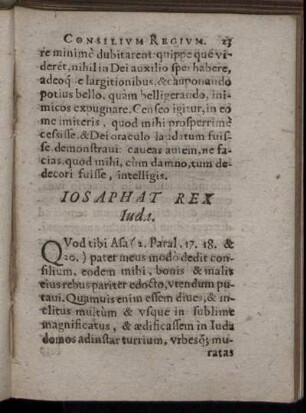 CONSILIVM REGIVM. 23
re minimè dubitarent: quippe qué vi-
derét, nihil in Dei auxilio spei habere,
adeoq́; e largitionibus, & cauponando
potius bello, quàm belligerando, ini-
micos expugnare. Censeo igitur, in eo
me imiteris, quod mihi prosperrimè
cessisse, & Dei oraculo laudatum fuis-
se, demonstraui: caueas autem, ne fa-
cias, quod mihi, cùm damno, tum de-
decori fuisse, intelligis.
IOSAPHAT REX
Iuda.
QVod tibi Asa (2. Paral. 17. 18. &
20.) pater meus modò dedit con-
silium, eodem mihi, bonis & malis
eius rebus pariter edocto, vtendum pu-
taui. Quamuis enim essem diues, & in-
clitus multùm & vsque in sublime
magnificatus, & ædificassem in Iuda
domos ad instar turrium, vrbesq́; mu-
ratas